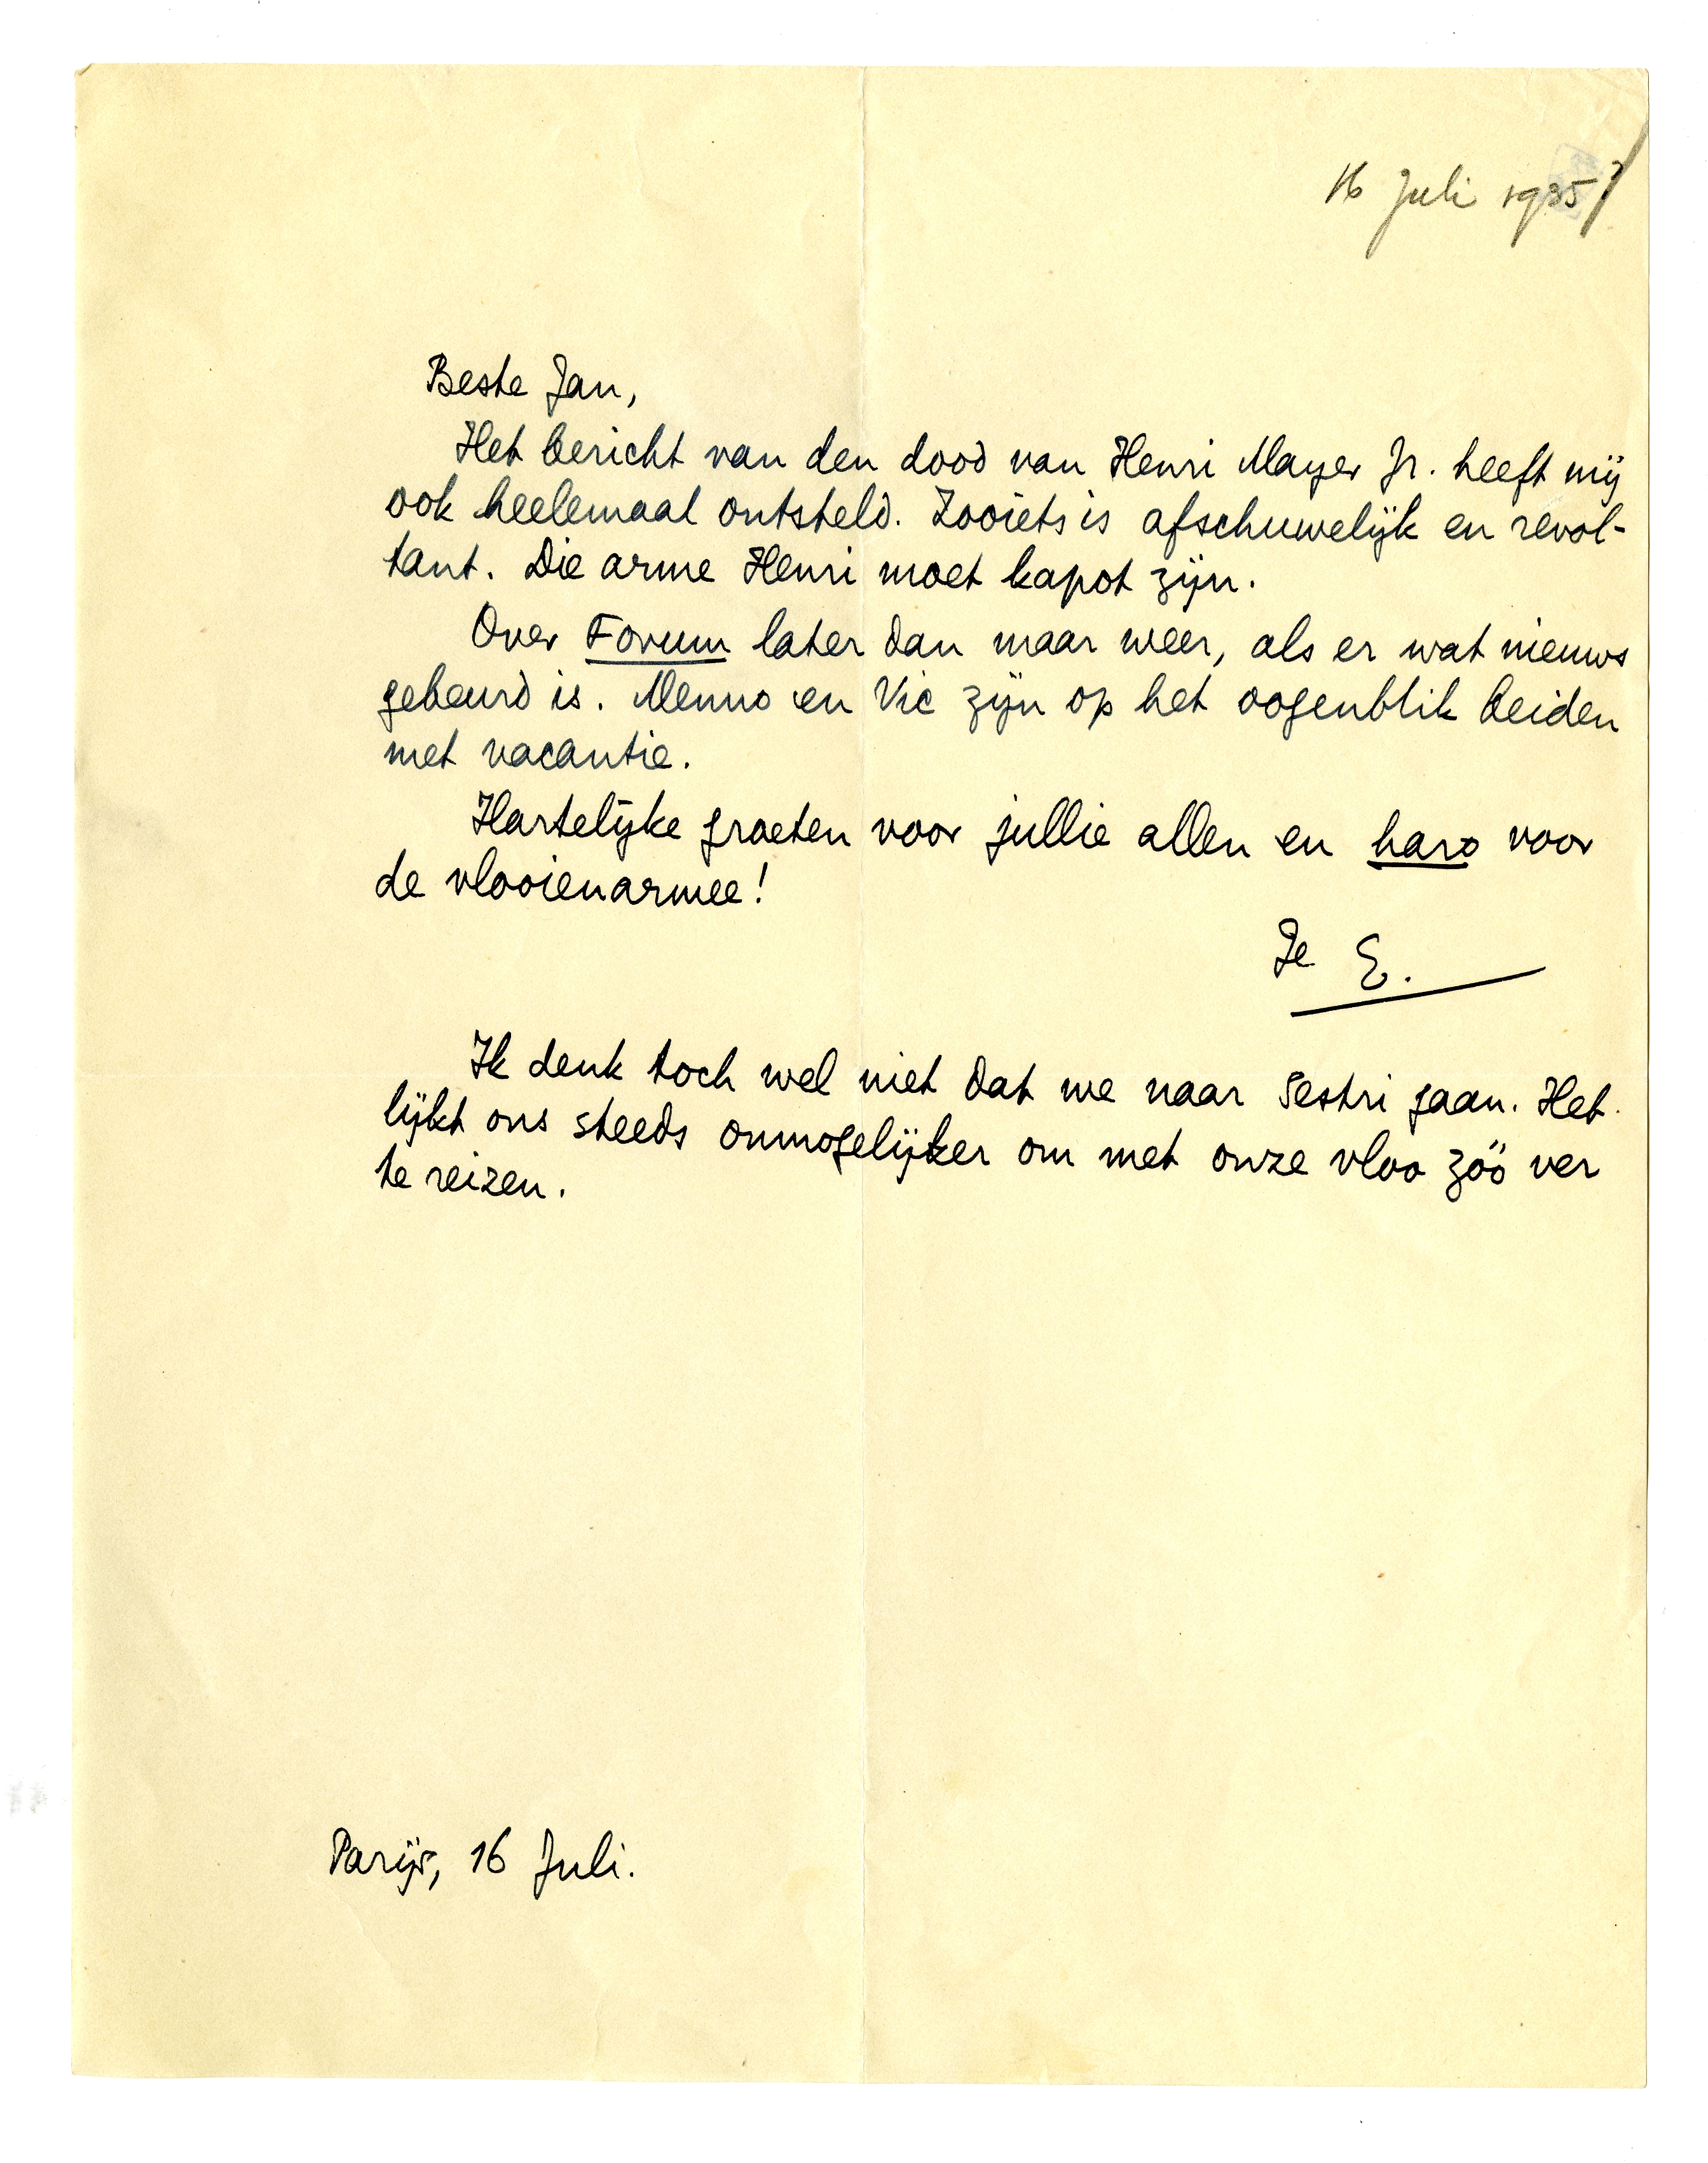 16 Juli 1935?
Beste Jan,
Het bericht van den dood van Henri Mayer Jr. heeft mij
ook heelemaal ontsteld. Zooiets is afschuwelijk en revol-
tant. Die arme Henri moet kapot zijn.
Over Forum later dan maar weer, als er wat nieuws
gebeurd is. Menno en Vic zijn op het oogenblik beiden
met vacantie.
Hartelijke groeten voor jullie allen en haro voor
de vlooienarmee!
Je E.
Ik denk toch wel niet dat we naar Sestri gaan. Het
lijkt ons steeds onmogelijker om met onze vloo zóó ver
te reizen.
Parijs, 16 Juli.